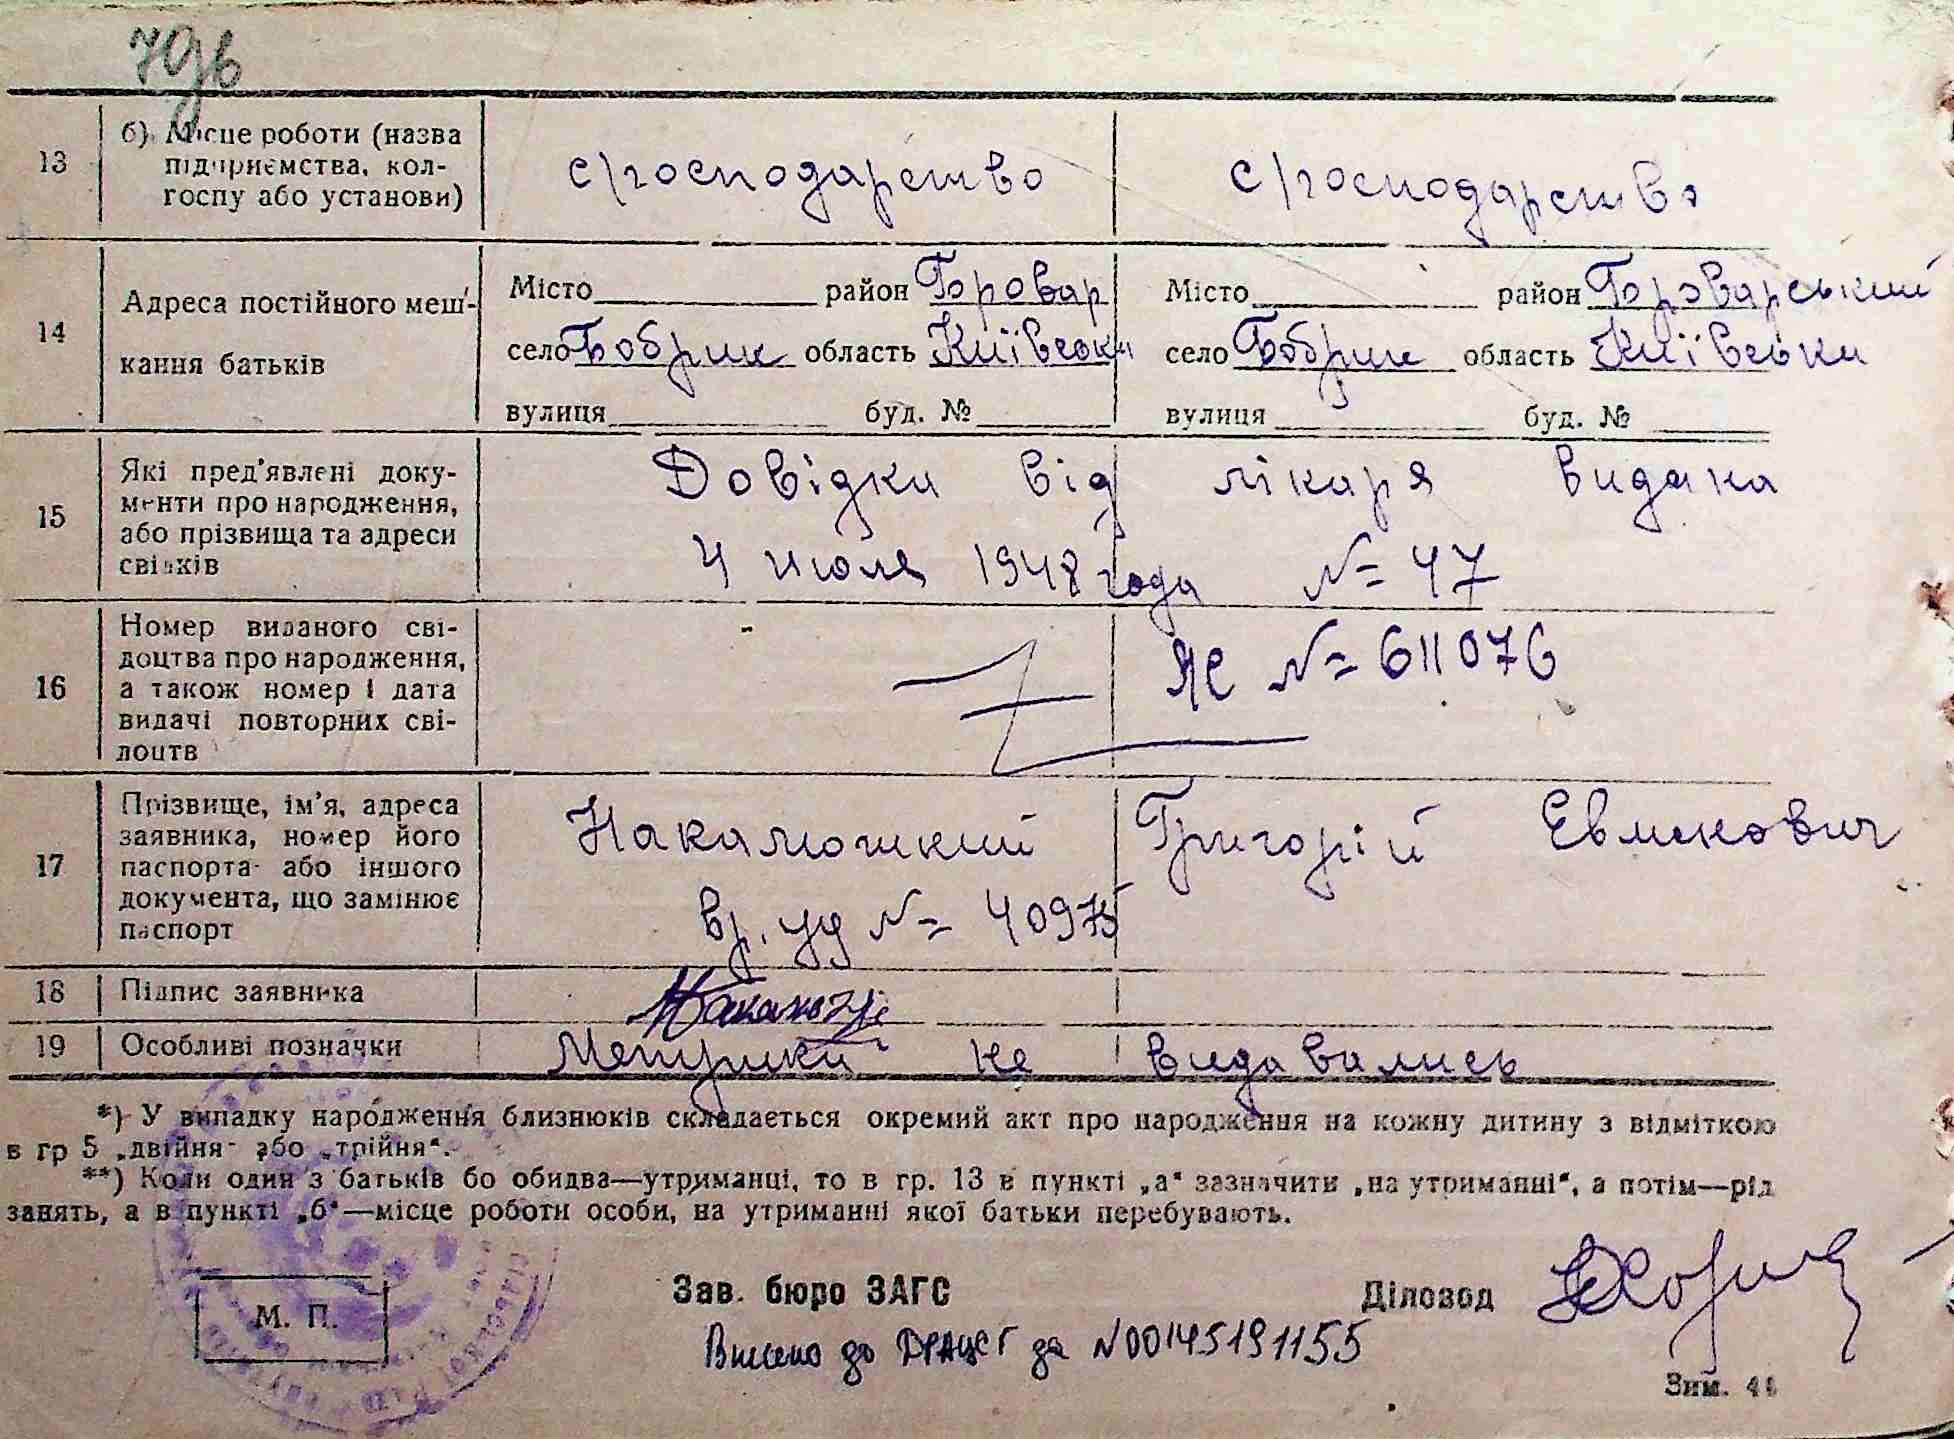 13 б) Місце роботи (назва с/господарство с/господарство
підприємства, кол-
госпу або установи)
Місто район Бровар Місто район Броварський
14 Адреса постійного меш- село Бобрик область Київськ село Бобрик область Київськи
кання батьків вулиця буд. № вулиця буд. №
15 Які пред'явлені доку- Довідки від лікаря видака
менти про народження,
або прізвища та адреси 4 июля 1948 года № 47
свідків
16 Номер виданого сві- ЯС № 611076
доцтва про народження,
а також номер і дата
видачі повторних сві-
доцтв
17 Прізвище, ім'я, адреса Григорій
заявника, номер його
паспорта або іншого
документа, що замінює вр. уд № 40975
паспорт
18 Підпис заявника
19 Особливі позначки Метрики не видавались
*) У випадку народження близнюків складається окремий акт про народження на кожну дитину з відміткою
в гр 5 „двійня" або „трійня".
**) Коли один з батьків бо обидва—утриманці, то в гр. 13 в пункті „а" зазначити „на утриманні", а потім—рід
занять, а в пункті „б"—місце роботи особи, на утриманні якої батьки перебувають.
М. П. Зав. бюро ЗАГС Діловод
Внесено до ДРАЦСГ за №00145191155
Зим.